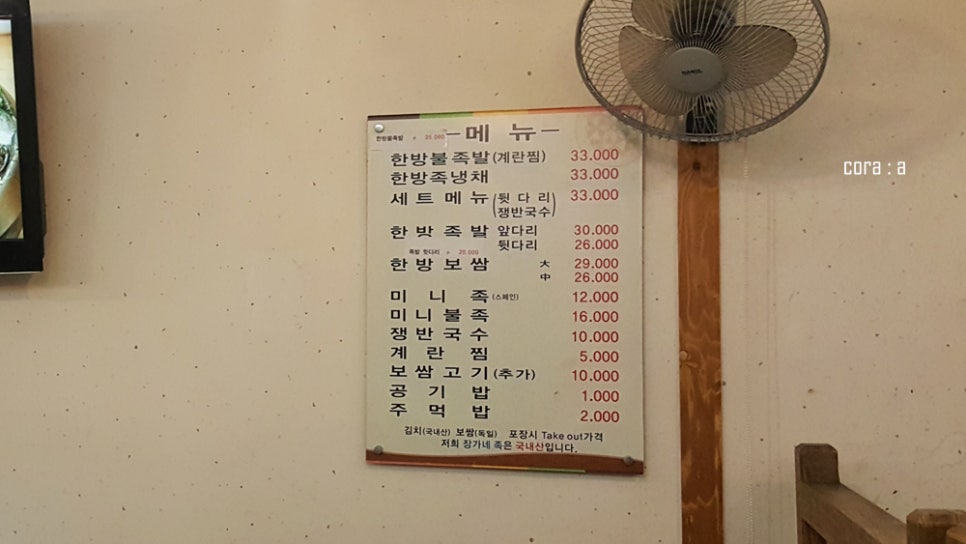 한방불족발 25.000
-메 뉴-
한방불족발(계란찜) 33.000
한방족냉채 33.000
세트메뉴(뒷다리 쟁반국수) 33.000
한방족발 앞다리 30.000
뒷다리 26.000
족발 뒷다리 25.000
한방보쌈 大 29.000
中 26.000
미니족(스페인) 12.000
미니불족 16.000
쟁반국수 10.000
계란찜 5.000
보쌈고기(추가) 10.000
공기밥 1.000
주먹밥 2.000
김치(국내산) 보쌈(독일) 포장시 Take out가격
저희 장가네 족은 국내산입니다.
cora : a